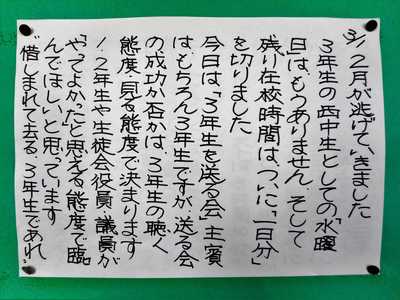 3/1 2月が逃げていきました
3年生の西中生としての「水曜
日」は、もうありません。そして
残り在校時間は、ついに「一日分」
を切りました
今日は、「3年生を送る会」主賓
はもちろん3年生ですが、送る会
の成功か否かは、3年生の聴く
態度・見る態度で決まります
1、2年生や生徒会役員・議員が
「やってよかった」と思える態度で臨
んでほしいと思っています
"惜しまれて去る、3年生であれ"